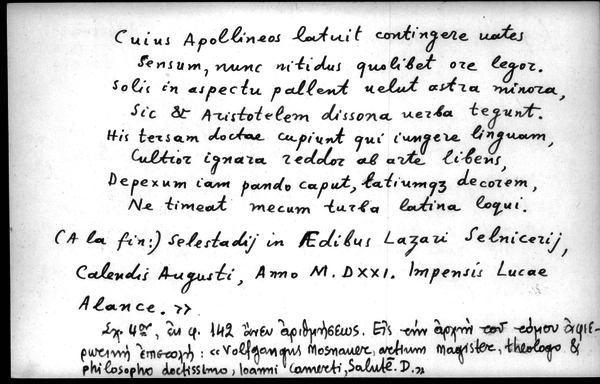 Cuius Apollineos latuit contingere uates
Sensum, nunc nitidus quolibet ore legor.
Solis in aspectu pallent uelut astra minora,
Sic & Aristotelem dissona uerba tegunt.
His tersam doctae cupiunt qui iungere linguam,
Cultior ignara reddor ab arte libens,
Depexum iam pando caput, latiumqȝ decorem,
Ne timeat mecum turba latina loqui.
(A la fin:) Selestadij in Ædibus Lazari Selnicerij,
Calendis Augusti, Anno M.DXXI. Impensis Lucae
Alance.»
Σχ. 4ον, ἐκ φ. 142 ἄνευ ἀριθμήσεως. Εἰς τὴν ἀρχὴν τοῦ τόμου ἀφιε-
ρωτικὴ ἐπιστολὴ: «Volfgangus Mosnauer, artium magister, theologo &
philosopho doctissimo, Ioanni Camerti, Salutē. D.»